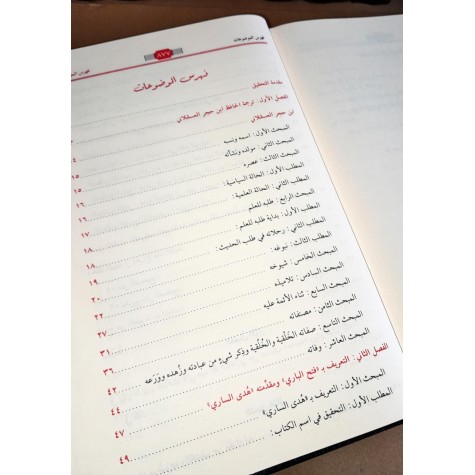 فهرس الموضوعات
٨٧٧
فهرس الموضوعات
مقدمة التحقيق
الفصل الأول: ترجمة الحافظ ابن حجر العسقلاني
ابن حجر العسقلاني ٤
المبحث الأول: اسمه ونسبه ١٥
المبحث الثاني: مولده ونشأته ١٥
المبحث الثالث: عصره ١٦
المطلب الأول: الحالة السياسية: ١٦
المطلب الثاني: الحالة العلمية: ١٧
المبحث الرابع: طلبه للعلم ١٨
المطلب الأول: بداية طلبه للعلم: ١٨
المطلب الثاني: رحلاته في طلب الحديث: ١٩
المطلب الثالث: نبوغه: ٢٠
المبحث الخامس: شيوخه ٢٢
المبحث السادس: تلاميذه ٢٧
المبحث السابع: ثناء الأئمة عليه ٣١
المبحث الثامن: مصنفاته ٣٦
المبحث التاسع: صفاته الخَلْقية والخُلُقية وذِكر شيءٍ من عبادته وزُهده ووَرَعه ٤٢
المبحث العاشر: وفاته ٤٤
الفصل الثاني: التعريف بـ «فتح الباري» ومقدِّمته «هُدى الساري» ٤٧
المبحث الأول: التعريف بـ «هُدى الساري» ٤٩
المطلب الأول: التحقيق في اسم الكتاب: